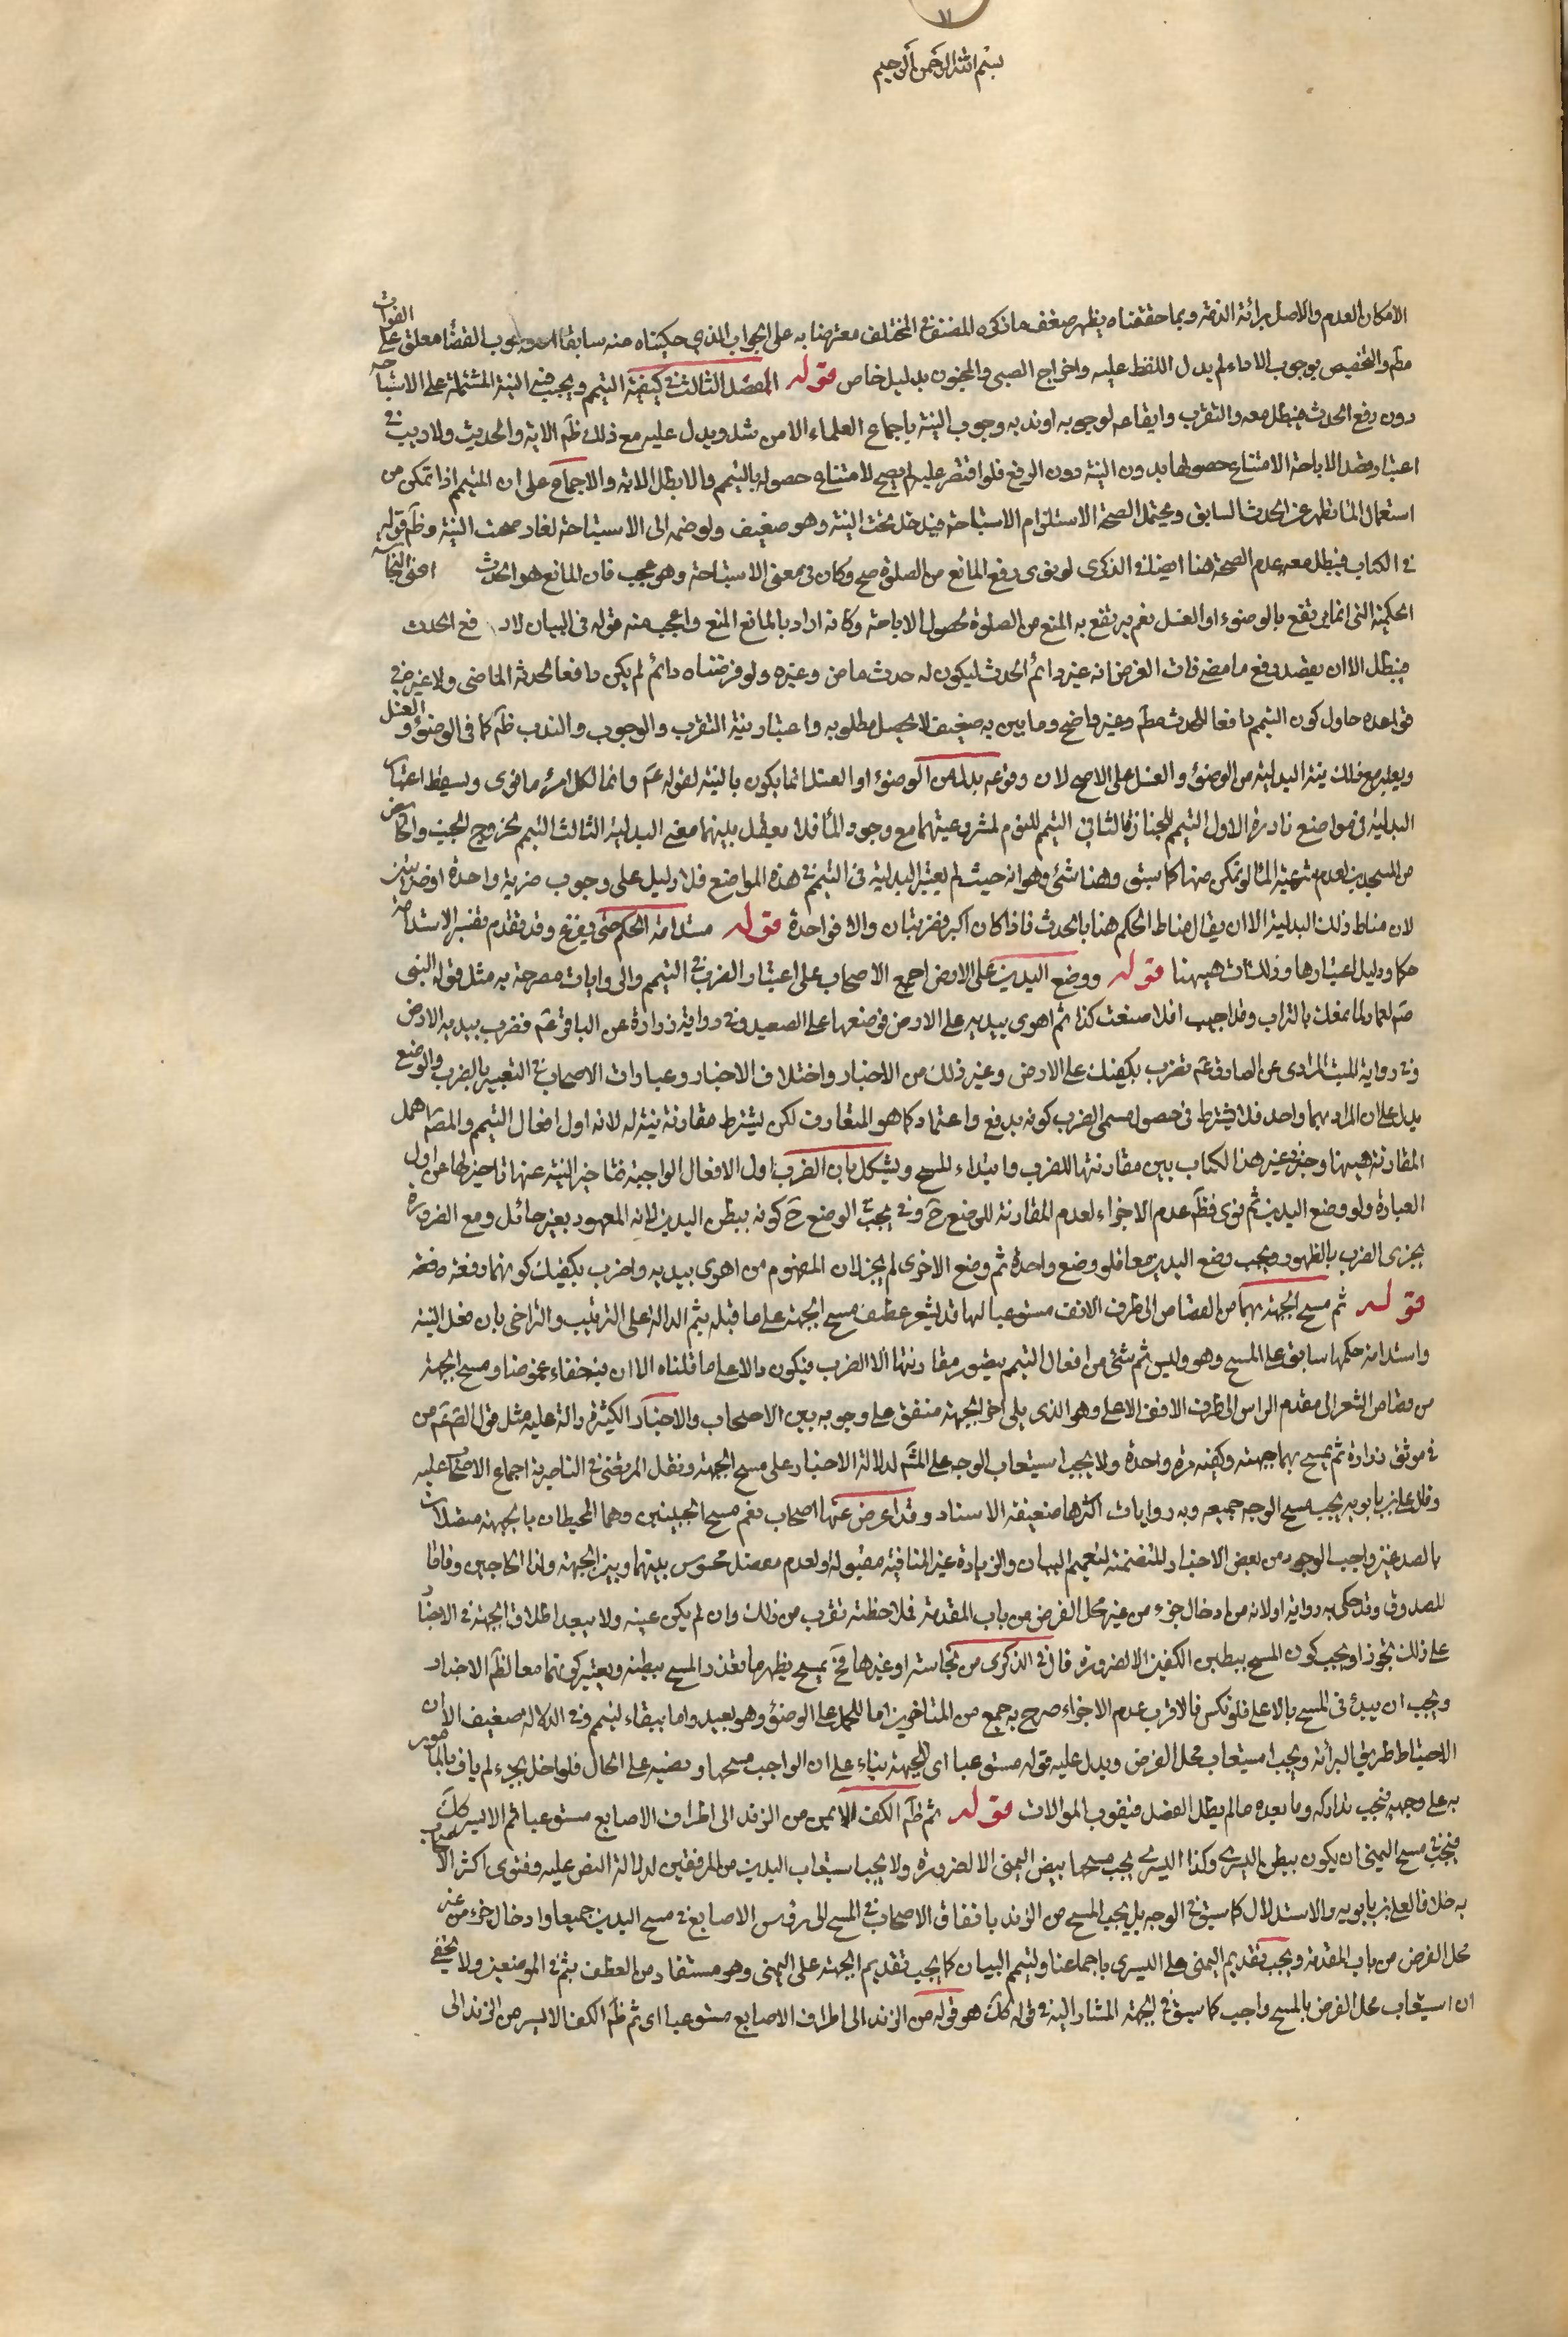 بسم الله الرحمن الرحيم
الامكان العدم والاصل برائة الذمة وبما حققناه يظهر ضعف ما ذكره المصنف في المختلف معترضا به على الجواب الذي حكيناه منه سابقا وجوب القضا معلق على الفوات
مطم والتخصيص بوجوب الاداء لم يدل اللفظ عليه واخراج الصبى والمجنون بدليل خاص قوله الفصل الثالث في كيفية التيمم ويجب فيه النية المشتملة على الاستباحة
دون رفع الحدث فيبطل معه والتقرب وايقاعه لوجوبه او ندبه وجوب النية باجماع العلماء الا من شذ ويدل عليه مع ذلك ظم الاية والحديث ولا ريب في
اعتبار قصد الاباحة الامتناع حصولها بدون النية دون الرفع فلو اقتصر عليه لم يصح لامتناع حصوله بالتيمم والا بطل الاية والاجماع على ان المتيمم اذا تمكن من
استعمال الما تطهر عن الحدث السابق ويحتمل الصحة الاستلزام الاستباحة فيدخل تحت النية وهو ضعيف ولو ضمه الى الاستباحة لغا وصحت النية وظم قوله
في الكتاب فيبطل معه عدم الصحة هنا ايضا في الذكرى لو نوى رفع المانع من الصلوة صح وكان في معنى الاستباحة وهو عجب فان المانع هو الحدث اعنى النجاسة
الحكمية التى انما يرتفع بالوضوء او الغسل نعم يرتفع به المنع من الصلوة لحصول الاباحة وكانه اراد بالمانع المنع واعجب منه قوله في البيان لا رفع الحدث
فيبطل الا ان يقصد رفع ما مضى فان الغرض انه غير دائم الحدث ليكون له حدث ماض وغيره ولو فرضناه دائم لم يكن دافعا لحدثه الماضى ولا غير في
قواعده حاول كون التيمم دافعا للحدث مطم وغير واضح وما بين به ضعيف لا يحصل مطلوبه واعتبار نية التقرب والوجوب والندب ظم كما في الوضوء والغسل
ويعتبر مع ذلك نية البدلية من الوضوء والغسل على الاصح لان وقوعه بدلا من الوضوء او الغسل انما يكون بالنية لقوله عم وانما لكل امرء ما نوى ويسقط اعتبار
البدلية في مواضع نادرة الاول التيمم للجنازة الثانى التيمم للنوم لمشروعيتهما مع وجود الما فلا يعقل بينهما معنى البدلية الثالث التيمم لخروج الجنب والحائض
من المسجدين لعدم شرعية الما لو تمكن منها كما سبق وهنا شئ وهو انه حيث لم يعتبر البدلية في التيمم في هذه المواضع فلا دليل على وجوب ضربة واحدة او ضربتين
لان مناط ذلك البدلية الا ان يقال مناط الحكم هنا بالحدث فاذا كان اكبر فضربتان والا فواحدة قوله مستدامة الحكم حتى يفرغ وقد تقدم تفسير الاستدامة
حكما ودليل اعتبارها وذلك ات هيهنا قوله ووضع اليدين على الارض اجمع الاصحاب على اعتبار الضرب في التيمم والروايات مصرحة به مثل قوله النبى
صم لعمار لما تمعك بالتراب وقد اجنب افلا صنعت كذا ثم اهوى بيديه على الارض فوضعها على الصعيد وفي رواية زرارة عن الباقر عم فضرب بيديه الارض
وفي رواية الليث المرادى عن الصادق عم تضرب بكفيك على الارض وغير ذلك من الاخبار واختلاف الاخبار وعبارات الاصحاب في التعبير بالضرب والوضع
يدل على ان المراد بهما واحد فلا يشترط في حصول مسمى الضرب كونه بدفع واعتماد كما هو المتعارف لكن يشترط مقارنة نيته له لانه اول افعال التيمم والمصم اهمل
المقارنة هيهنا وخير في غير هذا الكتاب بين مقارنتها للضرب وابتداء المسح ويشكل بان الضرب اول الافعال الواجبة فتاخير النية عنها تاخير لها عن اول
العبادة ولو وضع اليدين ثم نوى فظم عدم الاجزاء لعدم المقارنة للوضع ح وفي يجب الوضع ح كونه ببطن اليدين لانه المعهود بغير حائل ومع الضرورة
يجزى الضرب بالظهور ويجب وضع اليدين معا فلو وضع واحدة ثم وضع الاخرى لم يجز لان المفهوم من اهوى بيديه واضرب بكفيك كونهما دفعة دفعة
قوله ثم مسح الجبهة بهما من القصاص الى طرف الانف مستوعبا لها قد يشعر عطف مسح الجبهة على ما قبله بثم الدالة على الترتيب والتراخى بان فعل النية
واستدامة حكمها سابق على المسح وهو وليس ثم شئ من افعال التيمم يتصور مقارنتها الا الضرب فيكون دالا على ما قلناه الا ان فيه خفاء غموضا ومسح الجبهة
من قصاص الشعر الى مقدم الراس الى طرف الانف الاعلى وهو الذى يلى اخر الجبهة متفق على وجوبه بين الاصحاب والاخبار الكثيرة دالة عليه مثل قول الصم عم من
في موثق زرارة ثم يمسح بهما جبهته وكفيه مرة واحدة ولا يجب استيعاب الوجه على المشم لدلالة الاخبار على مسح الجبهة ونقل المرتضى في الناصرية اجماع الاصحاب عليه
وقال على بن بابويه يجب مسح الوجه جميعه وبه روايات اكثرها ضعيفة الاسناد وقد اعرض عنها اصحاب نعم مسح الجبينين وهما المحيطان بالجبهة متصلان
بالصدغين واجب الوجود من بعض الاخبار المتضمنة لتعميم البيان والزيادة غير المنافية مقبولة ولعدم مفصل محسوس بينهما وبين الجبهة ولذا الحاجبين وفاقا
للصدوق وقد حكى به رواية اولانه من ادخال جزء من غير محل الفرض من باب المقدمة فلاحظته تقرب من ذلك وان لم يكن عينه ولا يبعد اطلاق الجبهة في الايضا
على ذلك تجوزا ويجب كون المسح ببطن الكفين الا لضرورة قال في الذكرى من نجاسة او غيرها فح يمسح بظهرها تعذر المسح ببطنه ويعتبر كونهما معا لظم الاخبار
ويجب ان يبدئ في المسح بالاعلى فلو نكس فالاقرب عدم الاجزاء صرح به جمع من المتاخرين اما للحمل على الوضوء وهو بعيد واما ببقاء ليتم وفي الدلالة ضعيف الا ان
الاحتياط طريق البرائة ويجب استيعاب محل الفرض ويدل عليه قوله مستوعبا اى للجبهة بناء على ان الواجب مسحها ونصبه على الحال فلو اخل بجزء لم يات بالمامور
به على وجهه فيجب تداركه وما بعده ما لم يطل الفصل فيفوت الموالات قوله ثم ظم الكف الايمن من الزند الى اطراف الاصابع مستوعبا ثم الايسر كك
فيجب في مسح اليمنى ان يكون ببطن اليسرى وكذا اليسرى يجب مسحها ببطن اليمنى الا لضرورة ولا يجب استيعاب اليدين من المرفقين لدلالة النص عليه وفتوى اكثر الاصحاب
به خلافا لعلى بن بابويه والاستدلال كما سبق في الوجه بل يجب المسح من الزند باتفاق الاصحاب في المسح الى رؤس الاصابع في مسح اليدين جميعا وادخال جزء من غير
محل الفرض من باب المقدمة ويجب تقديم اليمنى على اليسرى باجماعنا وليتيمم البيان كما يجب تقديم الجبهة على اليمنى وهو مستفاد من العطف بثم في الموضعين ولا يخفى
ان استيعاب محل الفرض بالمسح واجب كما سبق في الجبهة المشار اليه في قوله كك هو قوله من الزند الى اطراف الاصابع مستوعبا اى ثم ظم الكف الايسر من الزند الى